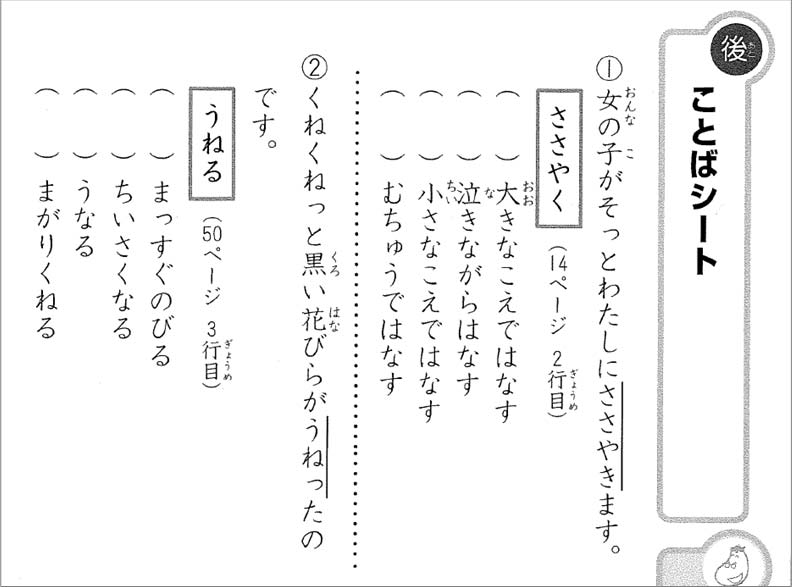 後
ことばシート
① 女の子がそっとわたしにささやきます。
ささやく (14ページ 2行目)
( ) 大きなこえではなす
( ) 泣きながらはなす
( ) 小さなこえではなす
( ) むちゅうではなす
② くねくねっと黒い花びらがうねったの
です。
うねる (50ページ 3行目)
( ) まっすぐのびる
( ) ちいさくなる
( ) うなる
( ) まがりくねる